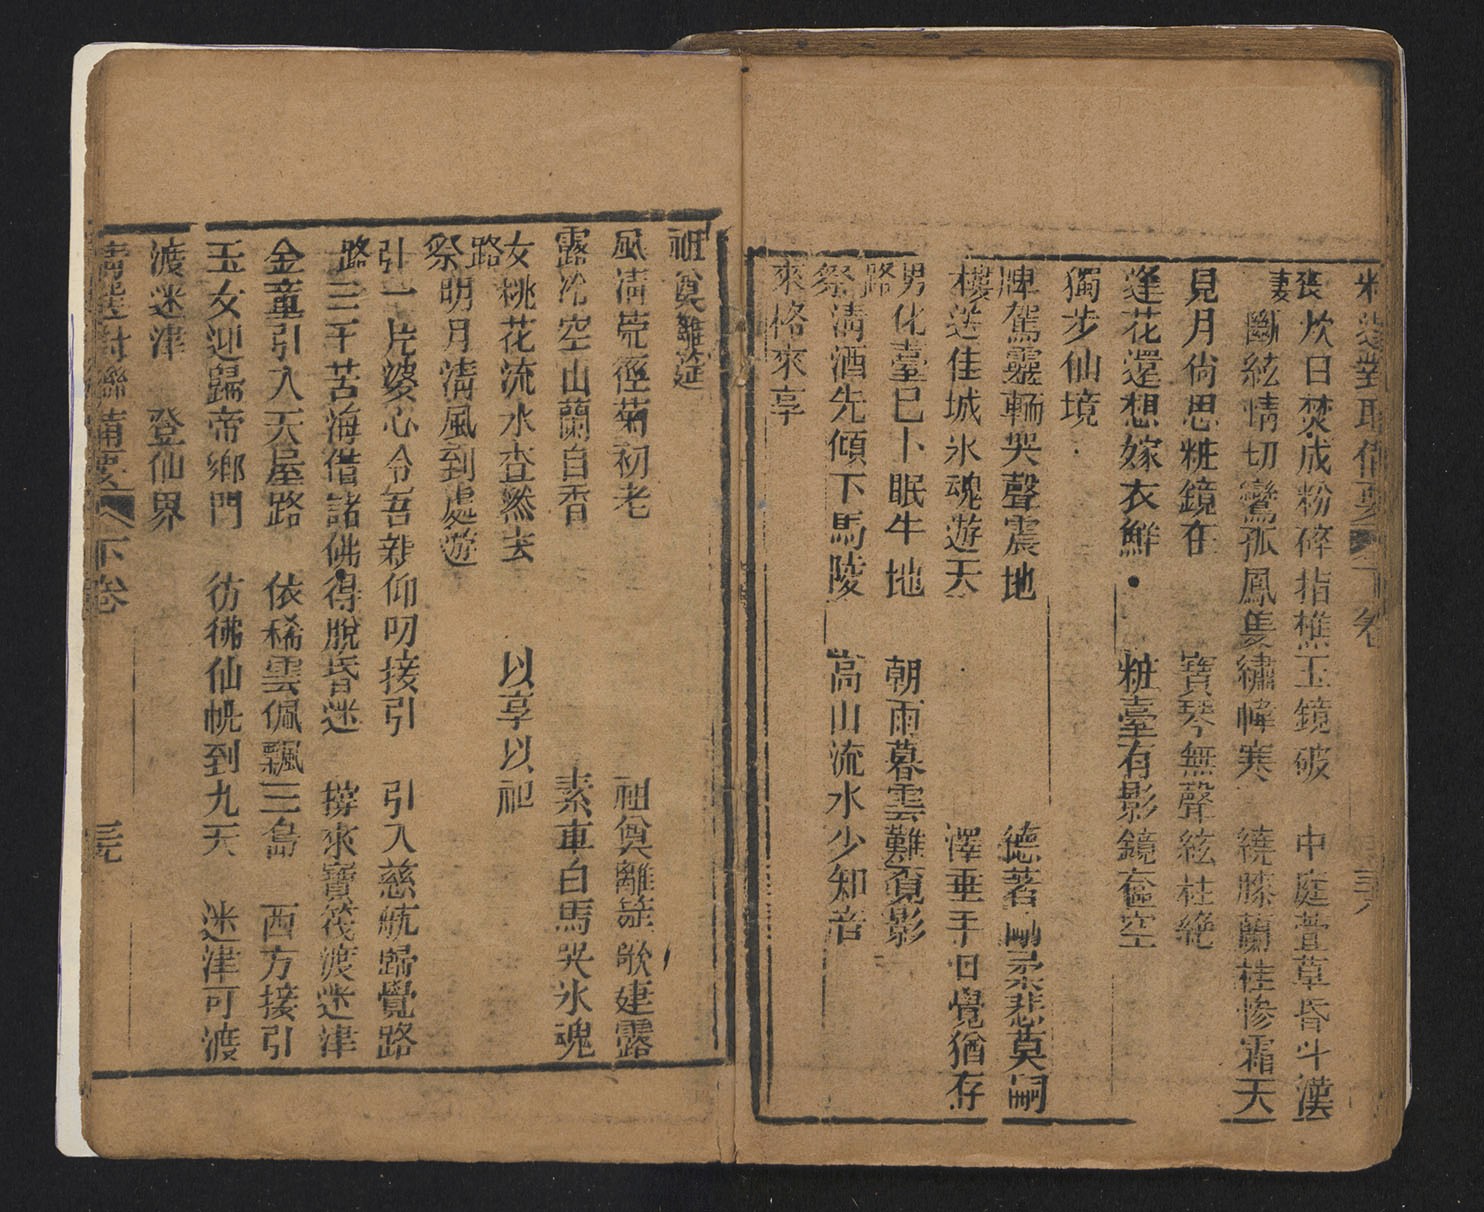 喪炊臼焚成粉碎指樵玉鏡破　中庭萱草昏斗漢
妻斷絃情切鸞孤鳳隻繡幃寒　繞膝蘭桂慘霜天
見月尙思粧鏡在　寶琴無聲絃柱絶
逢花還想嫁衣鮮　粧臺有影鏡奩空
獨步仙境
牌駕靈輀哭聲震地　德著
樓送佳城氷魂遊天　澤垂手日覺猶存
男化臺已卜眠牛地　朝雨暮雲難覓影
路祭淸酒先傾下馬陵　高山流水少知音
來格來享
祖奠離筵
風淸荒徑菊初老　祖奠離筵歌建露
露冷空山蘭自香　素車白馬哭氷魂
女桃花流水杳然去　以享以祀
路祭明月淸風到處遊
引一片婆心令吾親仰叨接引　引入慈航歸覺路
路三千苦海借諸佛得脫昏迷　撐來寶筏渡迷津
金童引入天屋路　依稀雲佩飄三島　西方接引
玉女迎歸帝鄉門　彷彿仙幌到九天　迷津可渡
渡迷津　登仙界
精選對聯備要　下卷　三元